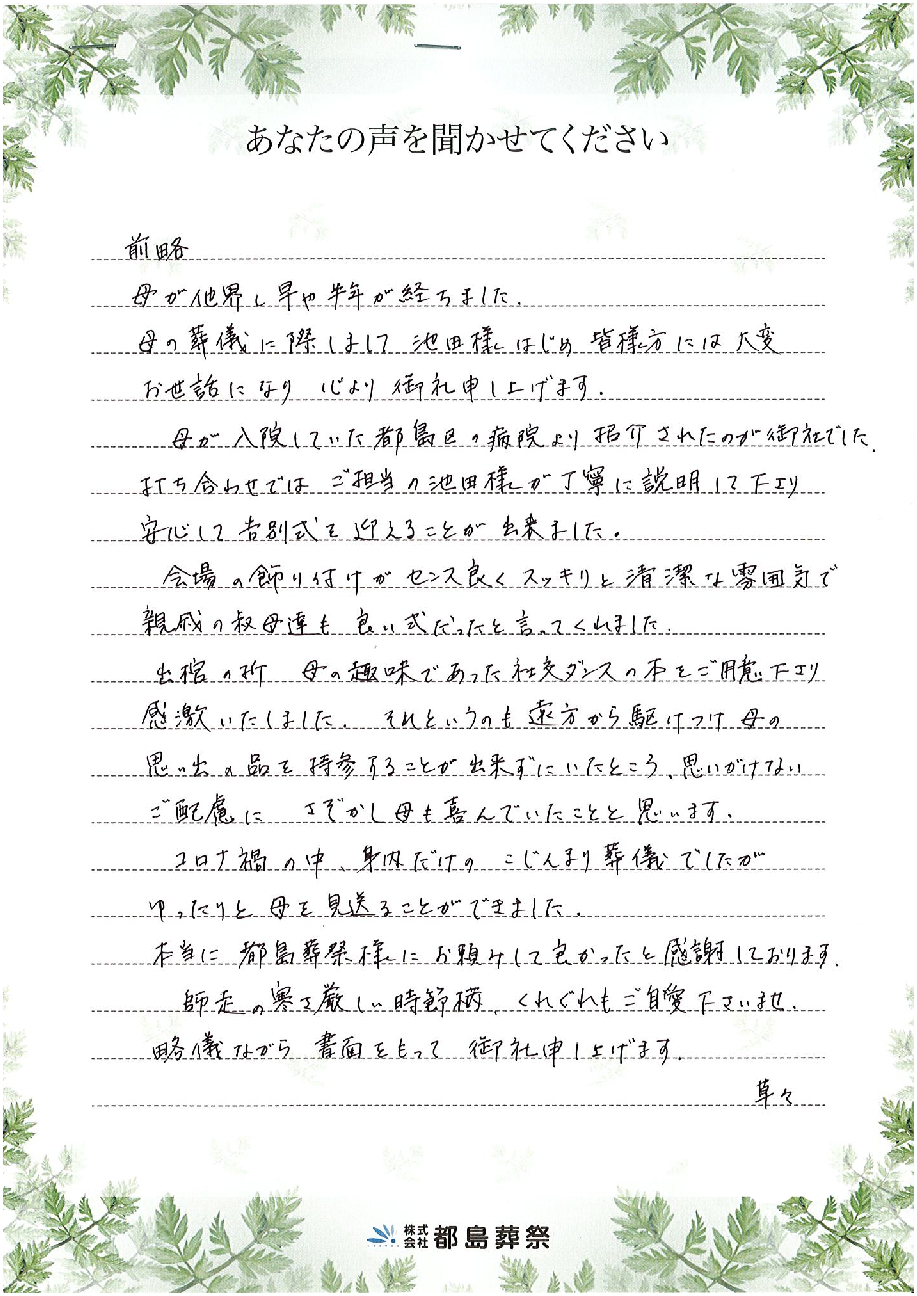 あなたの声を聞かせてください
前略
母が他界し早や半年が経ちました.
母の葬儀に際しまして 池田様はじめ 皆様方には大変
お世話になり 心より 御礼申し上げます.
母が入院していた都島区の病院より紹介されたのが御社でした.
打ち合わせでは ご担当の池田様が丁寧に説明して下さり
安心して告別式を迎えることが出来ました。
会場の飾り付けがセンス良くスッキリと清潔な雰囲気で
親戚の叔母達も 良い式だったと言ってくれました.
出棺の折 母の趣味であった社交ダンスの本をご用意下さり
感激いたしました. それというのも遠方から駆けつけ母の
思い出の品を持参することが出来ずにいたところ、思いがけない
ご配慮に さぞかし母も喜んでいたことと思います.
コロナ禍の中、身内だけの こじんまり葬儀でしたが
ゆったりと母を見送ることができました.
本当に 都島葬祭様にお頼みして良かったと感謝しております.
師走の寒さ厳しい時節柄、くれぐれもご自愛下さいませ.
略儀ながら 書面をもって 御礼申し上げます.
草々
株式会社 都島葬祭